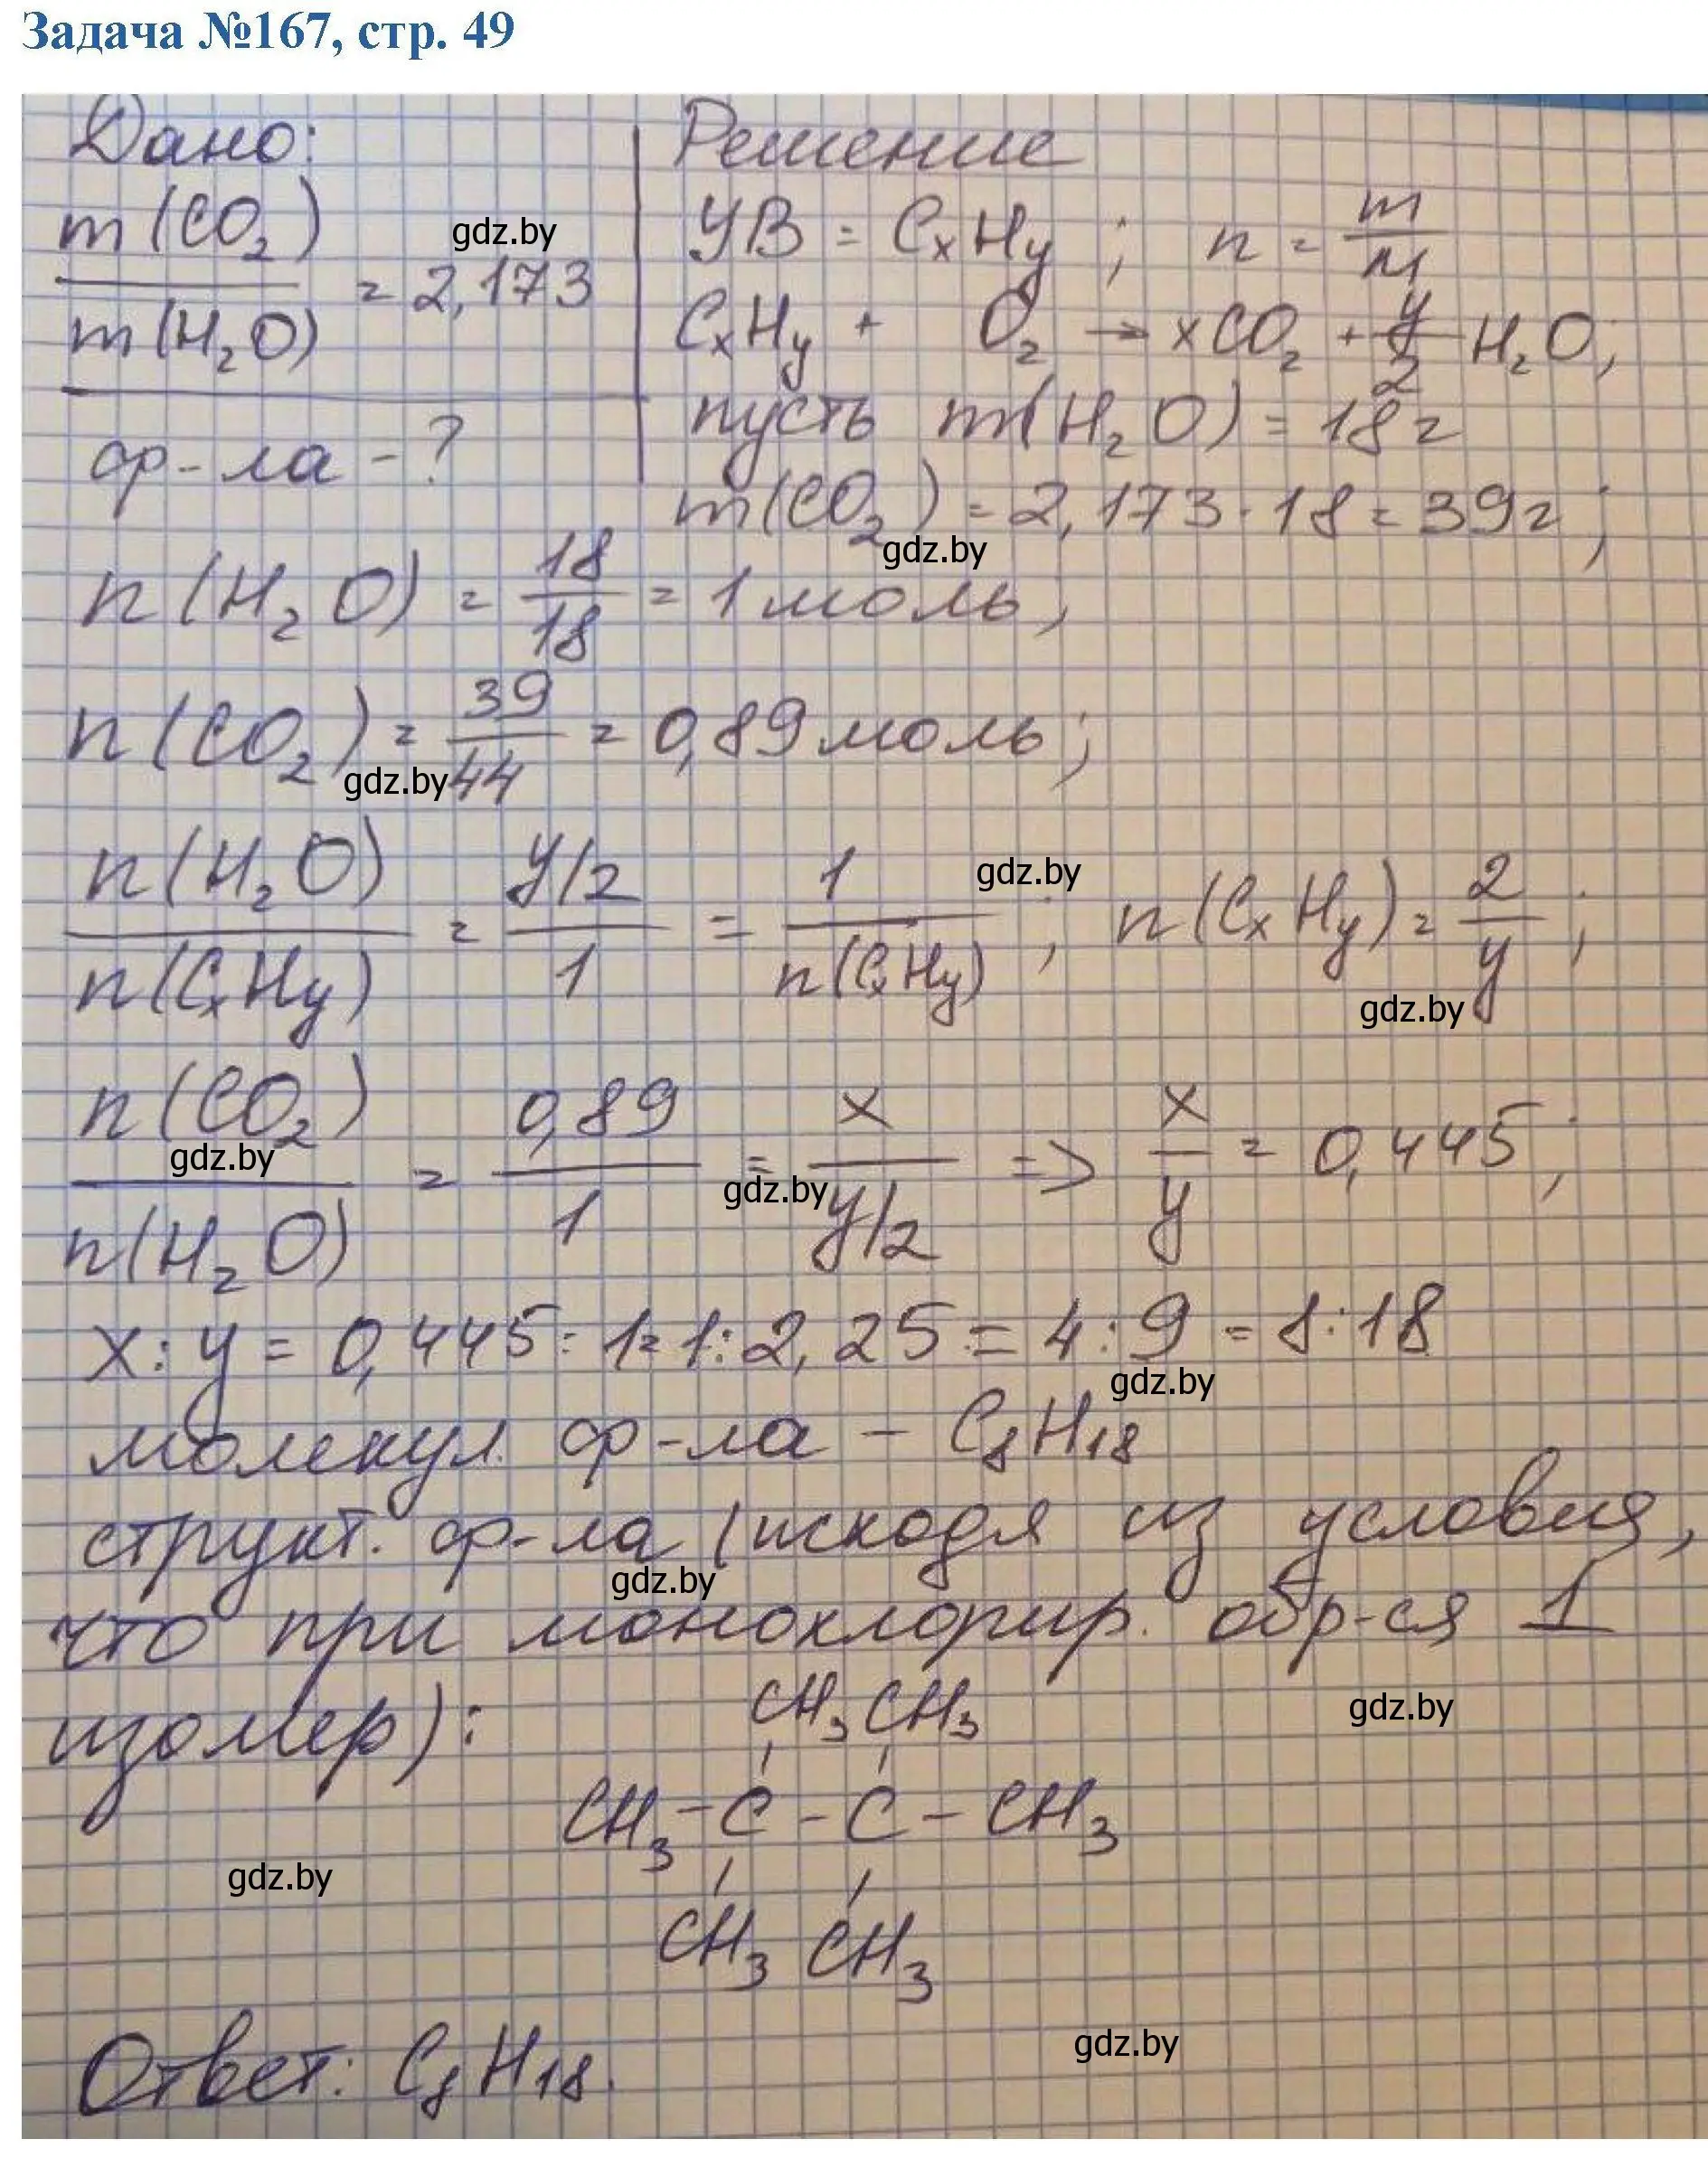 Задача №167, стр. 49
Дано:
m(CO₂)
/ m(H₂O) = 2,173
gdz.by
ф-ла - ?
Решение
УВ = CₓHᵧ ; n = m/M
CₓHᵧ + O₂ → xCO₂ + y/2 H₂O;
пусть m(H₂O) = 18г
m(CO₂) = 2,173 · 18 = 39г;
gdz.by
n(H₂O) = 18/18 = 1 моль;
n(CO₂) = 39/44 = 0,89 моль;
gdz.by
n(H₂O)/n(CₓHᵧ) = y/2 / 1 = 1/n(CₓHᵧ) ; n(CₓHᵧ) = 2/y ;
gdz.by
gdz.by
n(CO₂)/n(H₂O) = 0,89/1 = x / y/2 => x/y = 0,445;
gdz.by
gdz.by
x : y = 0,445 : 1 = 1 : 2,25 = 4 : 9 = 8 : 18
gdz.by
молекул. ф-ла – C₈H₁₈
структ. ф-ла (исходя из условия,
gdz.by
что при монохлорир. обр-ся 1
изомер):
gdz.by
CH₃ CH₃
CH₃ - C - C - CH₃
CH₃ CH₃
gdz.by
gdz.by
Ответ: C₈H₁₈.